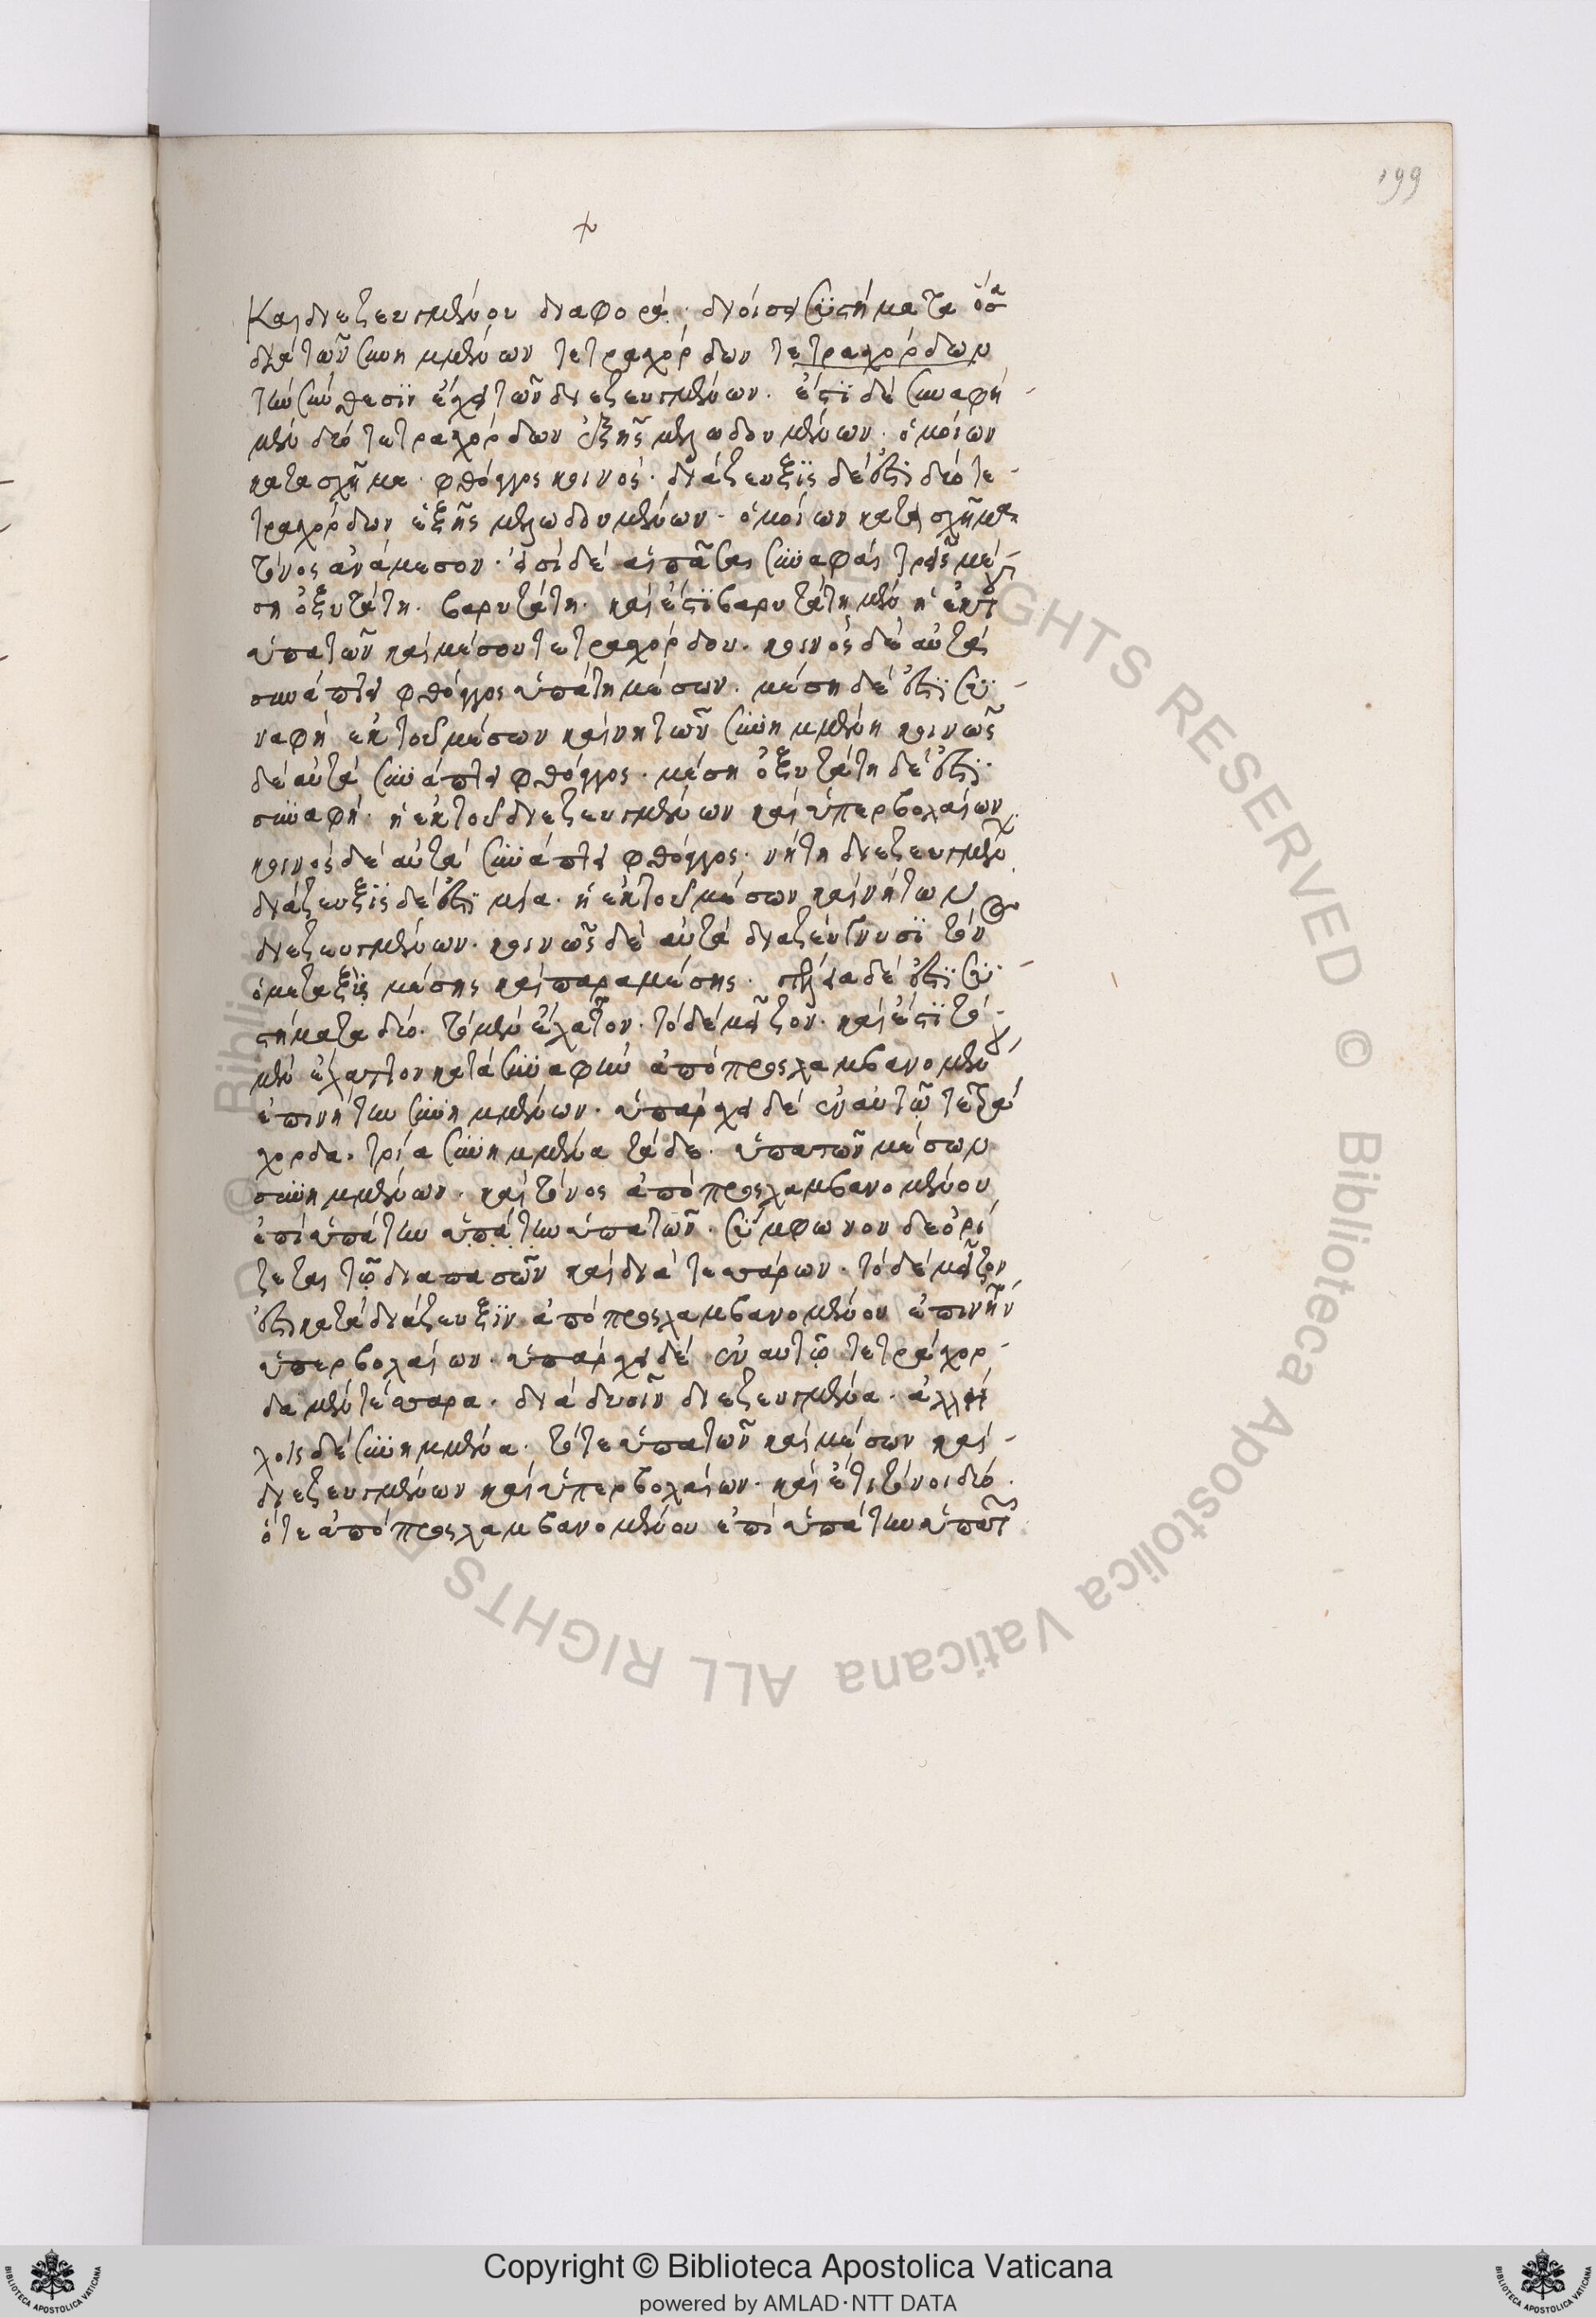 199
Και διεζευγμένου διαφορά· διοίσει συστήματα ὅσα
διὰ τῶν συνημμένων τετραχόρδων τετραχόρδων
τὴν σύνθεσιν ἔχει τῶν διεζευγμένων· ἔστι δὲ συναφὴ
μὲν δύο τετραχόρδων ἑξῆς μελωδουμένων· ὁμοίων
κατα σχῆμα· φθόγγος κοινός· διάζευξις δέ ἐστι δύο τε-
τραχόρδων ἑξῆς μελωδουμένων· ὁμοίων κατὰ σχῆμα
τόνος ἀνάμεσον· εἰσὶ δὲ αἱ πᾶσαι συναφαὶ τρεῖς μέ-
ση ὀξυτάτη· βαρυτάτη· καὶ ἔστι βαρυτάτη μὲν ἡ ἐκ τ
ὑπατῶν καὶ μέσου τετραχόρδου· κοινὸς δὲ αὐτὰς
συνάπτει φθόγγος ὑπάτη μέσων· μέση δέ ἐστι συ-
ναφὴ ἐκ τοῦ μέσων καὶ νητῶν συνημμένη κοινῶς
δὲ αὐτὰ συνάπτει φθόγγος· μέση ὀξυτάτη δέ ἐστι
συναφή· ἡ ἐκ τοῦ διεζευγμένων καὶ ὑπερβολαίων
κοινὸς δὲ αὐτὰ συνάπτει φθόγγος· νήτη διεζευγμέν
διάζευξις δέ ἐστι μία· ἡ ἐκ τοῦ μέσων καὶ νήτων
διεζευγμένων· κοινῶς δὲ αὐτὰ διαζεύγνυσι τόν
ὁ μεταξὺς μέσης καὶ παραμέσης· τέλεια δέ ἐστι συ-
στήματα δύο· τὸ μὲν ἔλαττον· τὸ δὲ μεῖζον· καὶ ἔστι τὸ
μὲν ἔλαττον κατὰ συναφὴν ἀπὸ προσλαμβανομέν
ἐπὶ νήτην συνημμένων· ὑπάρχει δὲ ἐν αὐτῷ τετρά
χορδα· τρία συνημμένα τάδε· ὑπατῶν μέσων
συνημμένων· καὶ τόνος ἀπὸ προσλαμβανομένου
ἐπὶ ὑπάτην ὑπάτην ὑπατῶν· σύμφωνον δὲ ὁρί
ζεται τῷ διαπασῶν καὶ διὰ τεσσάρων· τὸ δὲ μεῖζον
ἐστι κατὰ διάζευξιν ἀπὸ προσλαμβανομένου ἐπὶ νήτην
ὑπερβολαίων· ὑπάρχει δὲ ἐν αὐτῷ τετράχορ-
δα μὲν τέσσαρα· διὰ δυσῖν διεζευγμένα· ἀλλή
λοις δὲ συνημμένα· τό τε ὑπατῶν καὶ μέσων καὶ
διεζευγμένων καὶ ὑπερβολαίων· καὶ ἔτι τόνοι δύο·
ὅ τε ἀπὸ προσλαμβανομένου ἐπὶ ὑπάτην ὑπατ
© Biblioteca Apostolica Vaticana ALL RIGHTS RESERVED
Copyright © Biblioteca Apostolica Vaticana
powered by AMLAD·NTT DATA
BIBLIOTECA APOSTOLICA VATICANA
BIBLIOTECA APOSTOLICA VATICANA